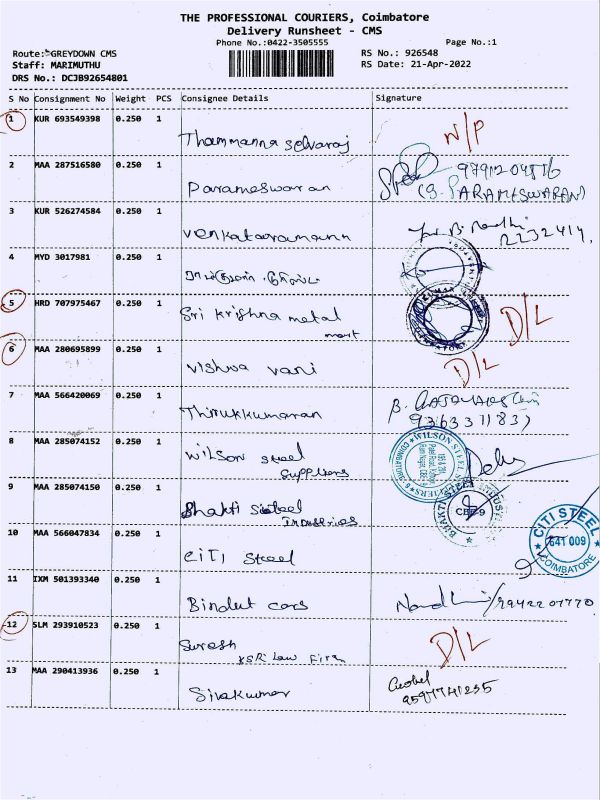 THE PROFESSIONAL COURIERS, Coimbatore
Delivery Runsheet - CMS
Phone No.:0422-3505555
Page No.:1
Route: GREYDOWN CMS
RS No.: 926548
Staff: MARIMUTHU
RS Date: 21-Apr-2022
DRS No.: DCJB92654801
S No Consignment No Weight PCS Consignee Details Signature
1 KUR 693549398 0.250 1
Thammanna Selvaraj N/P
2 MAA 287516580 0.250 1
Parameswaran
(S. PARAMESWARAN)
3 KUR 526274584 0.250 1
Venkataramann
2232414
4 MYD 3017981 0.250 1
5 HRD 707975467 0.250 1
Sri Krishna metal D/L
mart
6 MAA 280695899 0.250 1
Vishwa vani D/L
7 MAA 566420069 0.250 1
Thirukkumaran
8 MAA 285074152 0.250 1
Wilson steel
Suppliers
WILSON STEEL
COIMBATORE
9 MAA 285074150 0.250 1
Bhakti steel
Industries
BHAKTI
CBE-9
10 MAA 566047834 0.250 1
CITI Steel
CITI STEEL
641 009
COIMBATORE
11 IXM 501393340 0.250 1
Bindut cars
12 SLM 293910523 0.250 1
Suresh D/L
KSR Law Firm
13 MAA 290413936 0.250 1
Sivakumar